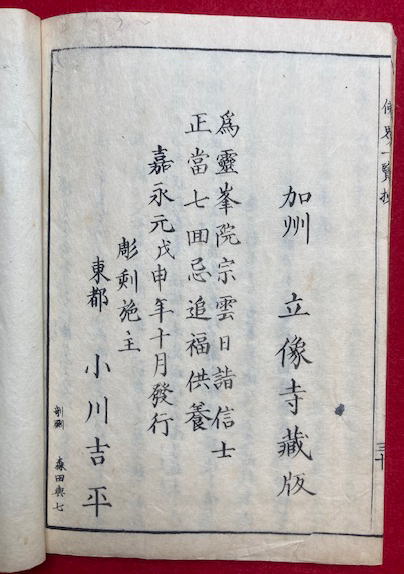 加州　立像寺藏版
爲靈峯院宗雲日詣信士
正當七回忌追福供養
嘉永元戊申年十月發行
彫刻施主
東都　小川吉平
剞劂　森田與七
一覽抄
三十